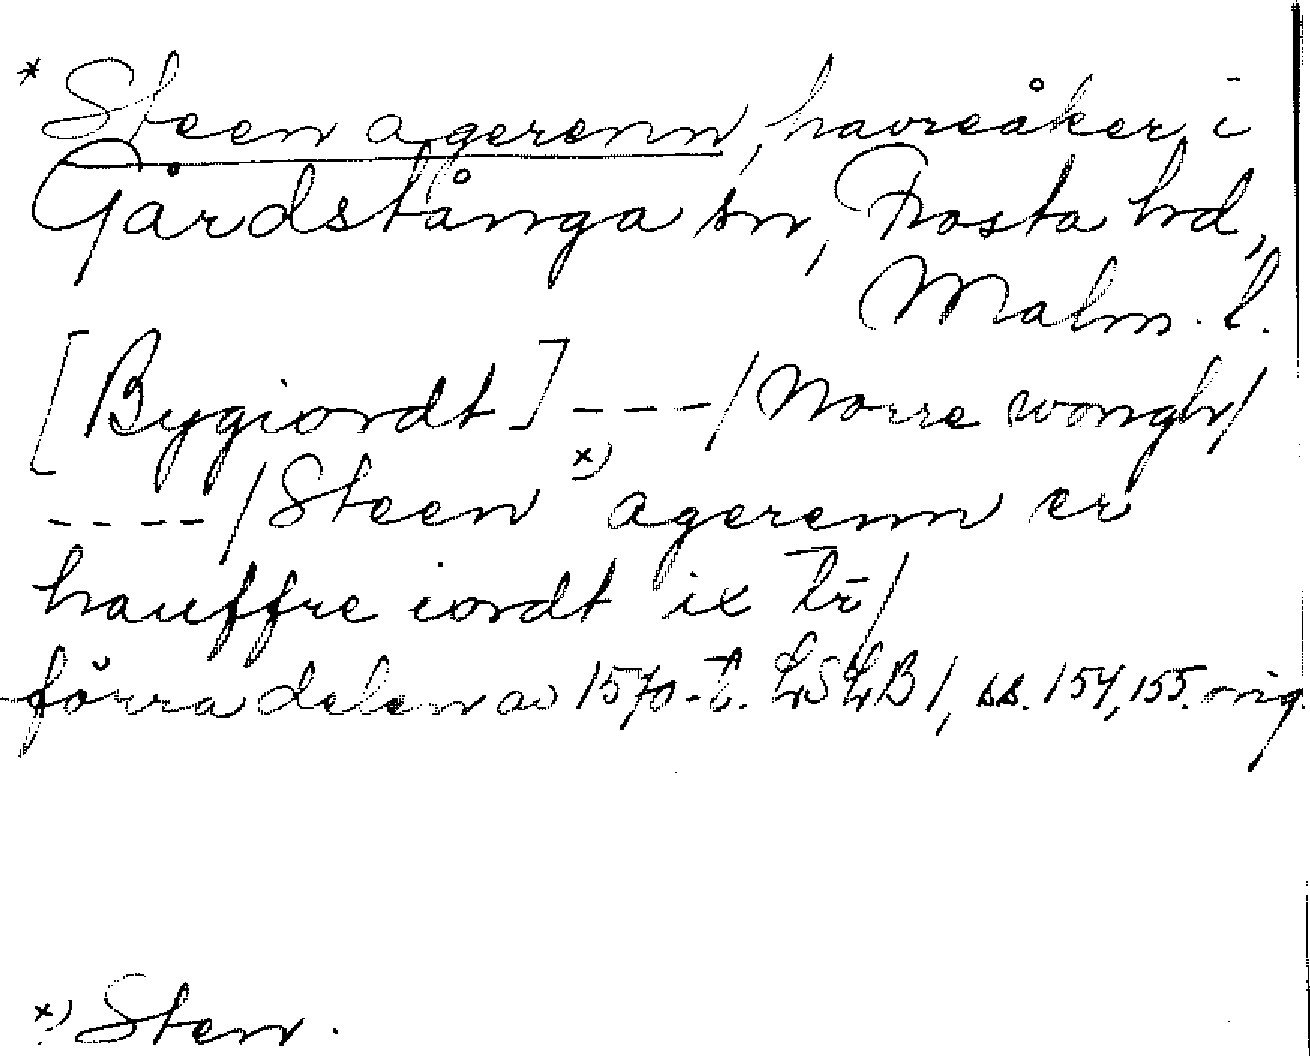 * Steen agerenn, havreåker i
Gårdstånga sn, Frosta hd,
Malm. l.
[Bygiordt] ---/ Norre wongh/
----/ Steen x) agerenn er
hauffre iordt ix
förra delen av 1570-t. LSLB 1, ss. 154, 155. orig.
x) Sten.